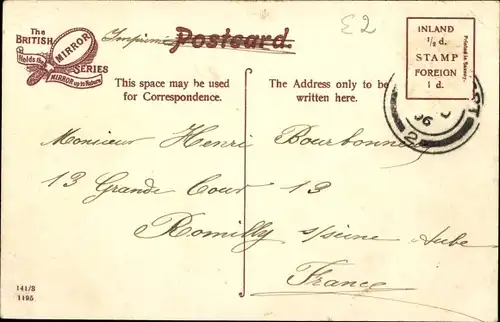 The
BRITISH
MIRROR
SERIES
Holds the
MIRROR up to Nature
Imprimé
Postcard.
£2
INLAND
½ d.
STAMP
FOREIGN
1 d.
Printed in Saxony.
This space may be used
for Correspondence.
The Address only to be
written here.
06
2
Monsieur Henri Bourbonneux
13 Grande Cour 13
Romilly s/seine Aube
France
141/3
1195